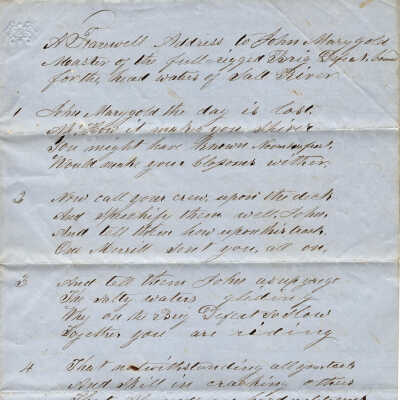 A Farewell Address to John Marygold
Master of the full rigged Brig Defeat, bound
for the head waters of Salt River
1 John Marygold the day is lost,
how it makes you shiver
You might have known
Would make your blossoms wither,
2 Now call your crew, upon the deck
And speechify them well, John,
And tell them how upon this
One Merrill sent you, all on,
3 And tell them John as up you go
The salty waters gliding
Why on the Brig Defeat so slow
Together you are riding
4 That notwithstanding all your
And skill in